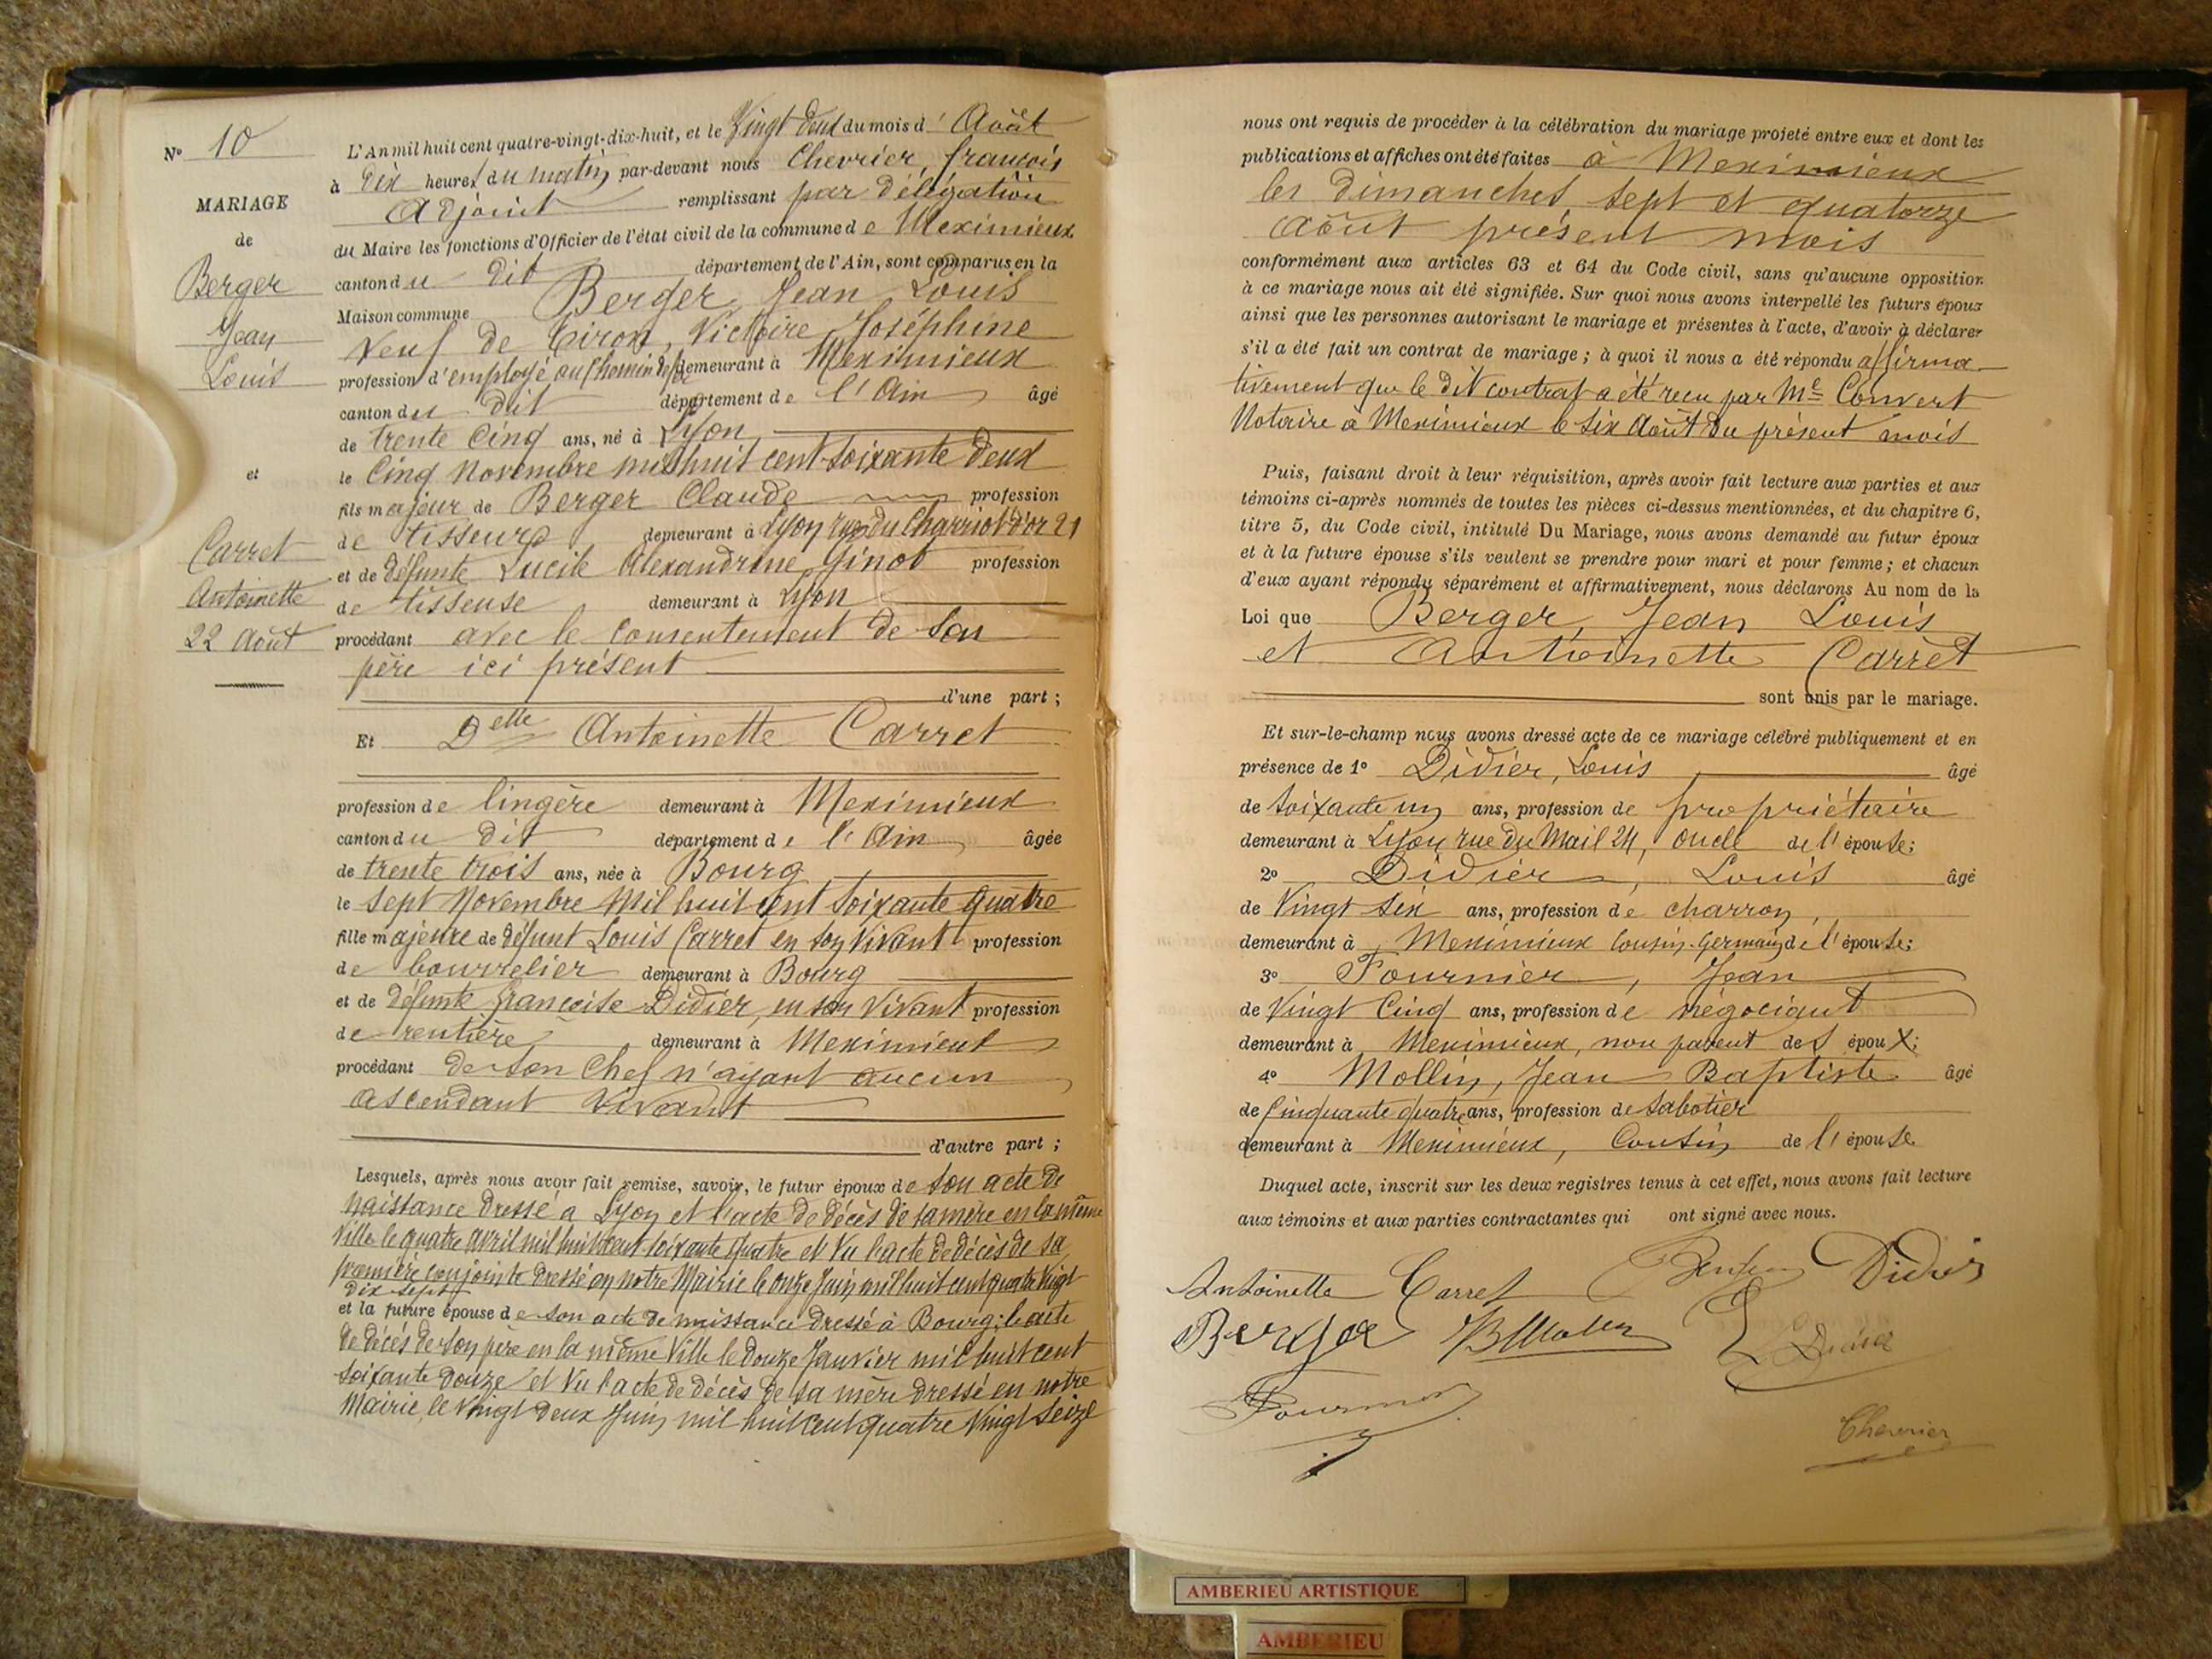 N° 10
MARIAGE
de
Berger
Jean
Louis
et
Carret
Antoinette
22 Août
L'An mil huit cent quatre-vingt-dix-huit, et le Vingt deux du mois d'Août
à dix heures du matin par-devant nous Chevrier, françois
Adjoint remplissant par délégation
du Maire les fonctions d'Officier de l'état civil de la commune de Meximieux
canton du dit département de l'Ain, sont comparus en la
Maison commune Berger Jean Louis
Veuf de Victoire Joséphine
profession d'employé au Chemin de fer demeurant à Meximieux
canton du dit département de l'Ain âgé
de trente cinq ans, né à Lyon
le Cinq Novembre mil huit cent soixante deux
fils majeur de Berger Claude profession
de tisseur demeurant à Lyon rue du Charriot d'or 21
et de défunte Lucile Alexandrine Ginot profession
de tisseuse demeurant à Lyon
procédant avec le consentement de son
père ici présent
d'une part ;
Et Delle Antoinette Carret
profession de lingère demeurant à Meximieux
canton du dit département de l'Ain âgée
de trente trois ans, née à Bourg
le sept Novembre Mil huit cent soixante quatre
fille majeure de défunt Louis Carret en son vivant profession
de bourrelier demeurant à Bourg
et de défunte françoise Didier, en son vivant profession
de rentière demeurant à Meximieux
procédant de son Chef n'ayant aucun
ascendant vivant
d'autre part ;
Lesquels, après nous avoir fait remise, savoir, le futur époux de son acte de
naissance dressé à Lyon et l'acte de décès de sa mère en la même
Ville le quatre avril mil huit cent soixante quatre et vu l'acte de décès de sa
première conjointe dressé en notre Mairie le onze Juin mil huit cent quatre vingt
dix sept
et la future épouse de son acte de naissance dressé à Bourg ; l'acte
de décès de son père en la même Ville le douze Janvier mil huit cent
soixante douze et vu l'acte de décès de sa mère dressé en notre
Mairie, le vingt deux Juin mil huit cent quatre vingt seize
nous ont requis de procéder à la célébration du mariage projeté entre eux et dont les
publications et affiches ont été faites à Meximieux
les dimanches sept et quatorze
Août présent mois
conformément aux articles 63 et 64 du Code civil, sans qu'aucune opposition
à ce mariage nous ait été signifiée. Sur quoi nous avons interpellé les futurs époux
ainsi que les personnes autorisant le mariage et présentes à l'acte, d'avoir à déclarer
s'il a été fait un contrat de mariage ; à quoi il nous a été répondu affirma-
tivement que le dit contrat a été reçu par Me Convert
Notaire à Meximieux le six Août du présent mois
Puis, faisant droit à leur réquisition, après avoir fait lecture aux parties et aux
témoins ci-après nommés de toutes les pièces ci-dessus mentionnées, et du chapitre 6,
titre 5, du Code civil, intitulé Du Mariage, nous avons demandé au futur époux
et à la future épouse s'ils veulent se prendre pour mari et pour femme ; et chacun
d'eux ayant répondu séparément et affirmativement, nous déclarons Au nom de la
Loi que Berger, Jean Louis
et Antoinette Carret
sont unis par le mariage.
Et sur-le-champ nous avons dressé acte de ce mariage célébré publiquement et en
présence de 1° Didier, Louis âgé
de soixante un ans, profession de propriétaire
demeurant à Lyon rue du Mail 24, oncle de l'épouse ;
2° Didier, Louis âgé
de Vingt six ans, profession de charron,
demeurant à Meximieux Cousin-Germain de l'épouse ;
3° Fournier, Jean
de Vingt Cinq ans, profession de négociant
demeurant à Meximieux, non parent des époux ;
4° Mollin, Jean Baptiste âgé
de Cinquante quatre ans, profession de sabotier
demeurant à Meximieux, Cousin de l'épouse
Duquel acte, inscrit sur les deux registres tenus à cet effet, nous avons fait lecture
aux témoins et aux parties contractantes qui ont signé avec nous.
Antoinette Carret Didier
Berger JBMollin
Fournier
Chevrier
AMBERIEU ARTISTIQUE
AMBERIEU